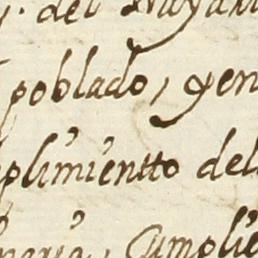 y. del
poblado, yen
plimientto del
naria, Cumplie